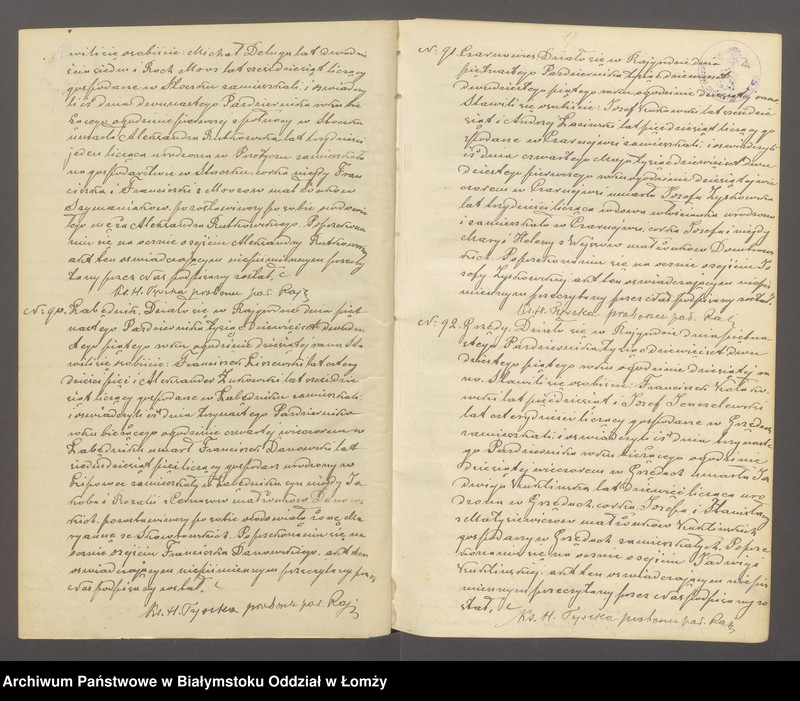 wili się osobiście: Michał Deluga lat dwadzi
eścia siedm i Roch Moos lat sześćdziesiąt liczący
gospodarze w Stocsku zamieszkali i oświadczy
li iż dnia dwunastego Października roku bie
żącego o godzinie pierwszej z północy w Stocsku
umarła Aleksandra Rutkowska lat trzydzieści
jeden licząca urodzona w zamieszkała
na gospodarstwie w Stocsku, córka niegdy Fran
ciszka i Franciszki z Moosów małżonków
Szymaniaków, pozostawiwszy po sobie owdowia
łego męża Aleksandra Rutkowskiego. Po przekona
niu się na ocznie o zejściu Aleksandry Rutkowskiej
akt ten oświadczającym niepiśmiennym przeczy
tany przez Nas podpisany został.
Ks. H. Tyszka proboszcz par. Rajg
No 90. Łabędnik. Działo się w Rajgrodzie dnia pięt
nastego Października tysiąc dziewięćset dwudzie
stego piątego roku o godzinie dziesiątej rano. Sta
wili się osobiście: Franciszek Kiszewski lat czter
dzieści pięć i Aleksander Żukowski lat sześćdzie
siąt liczący gospodarze w Łabędniku zamieszkali
i oświadczyli iż dnia trzynastego Października
roku bieżącego o godzinie czwartej wieczorem w
Łabędniku umarł Franciszek Danowski lat
siedmdziesiąt pięć liczący gospodarz urodzony w
zamieszkały w Łabędniku syn niegdy Ja
kóba i Rozalii z małżonków Danows
kich. pozostawiwszy po sobie owdowiałą żonę Ma
ryannę ze Skowrońskich. Po przekonaniu się na
ocznie o zejściu Franciszka Danowskiego. akt ten
oświadczającym niepiśmiennym przeczytany przez
Nas podpisany został.
Ks. H. Tyszka proboszcz par. Rajg
No 91. Czarnawieś. Działo się w Rajgrodzie dnia
piętnastego Października tysiąc dziewięćset
dwudziestego piątego roku o godzinie dziesiątej rano
Stawili się osobiście: Józef lat sześćdzie
siąt i Andrzej Łasiński lat pięćdziesiąt liczący go
spodarze w Czarnejwsi zamieszkali i oświadczyli
iż dnia czwartego Maja tysiąc dziewięćset dwu
dziestego pierwszego roku o godzinie dziesiątej wie
czorem w Czarnejwsi umarła Józefa Zyskowska
lat trzydzieści licząca wdowa włościanka urodzona
i zamieszkała w Czarnejwsi, córka Józefa i niegdy
Maryi Heleny z małżonków
Po przekonaniu się na ocznie o zejściu Jó
zefy Zyskowskiej, akt ten oświadczającym niepiś
miennym przeczytany przez Nas podpisany został.
Ks. H. Tyszka proboszcz par. Rajg
No 92. Grzędy. Działo się w Rajgrodzie dnia piętna
stego Października tysiąc dziewięćset dwu
dziestego piątego roku o godzinie dziesiątej ra
no. Stawili się osobiście: Franciszek
lat pięćdziesiąt i Józef
lat czterydzieści liczący gospodarze w Grzędach
zamieszkali i oświadczyli iż dnia trzynaste
go Października roku bieżącego o godzinie
dziesiątej wieczorem w Grzędach umarła Ja
dwiga Kuklinska lat dziewięć licząca uro
dzona w Grzędach, córka Józefa i Stanisławy
z Matysiewiczów małżonków Kuklinskich
gospodarzy w Grzędach zamieszkałych. Po prze
konaniu się na ocznie o zejściu Jadwigi
Kuklinskiej, akt ten oświadczającym niepiś
miennym przeczytany przez Nas podpisany zo
stał.
Ks. H. Tyszka proboszcz par. Rajg
Archiwum Państwowe w Białymstoku Oddział w Łomży